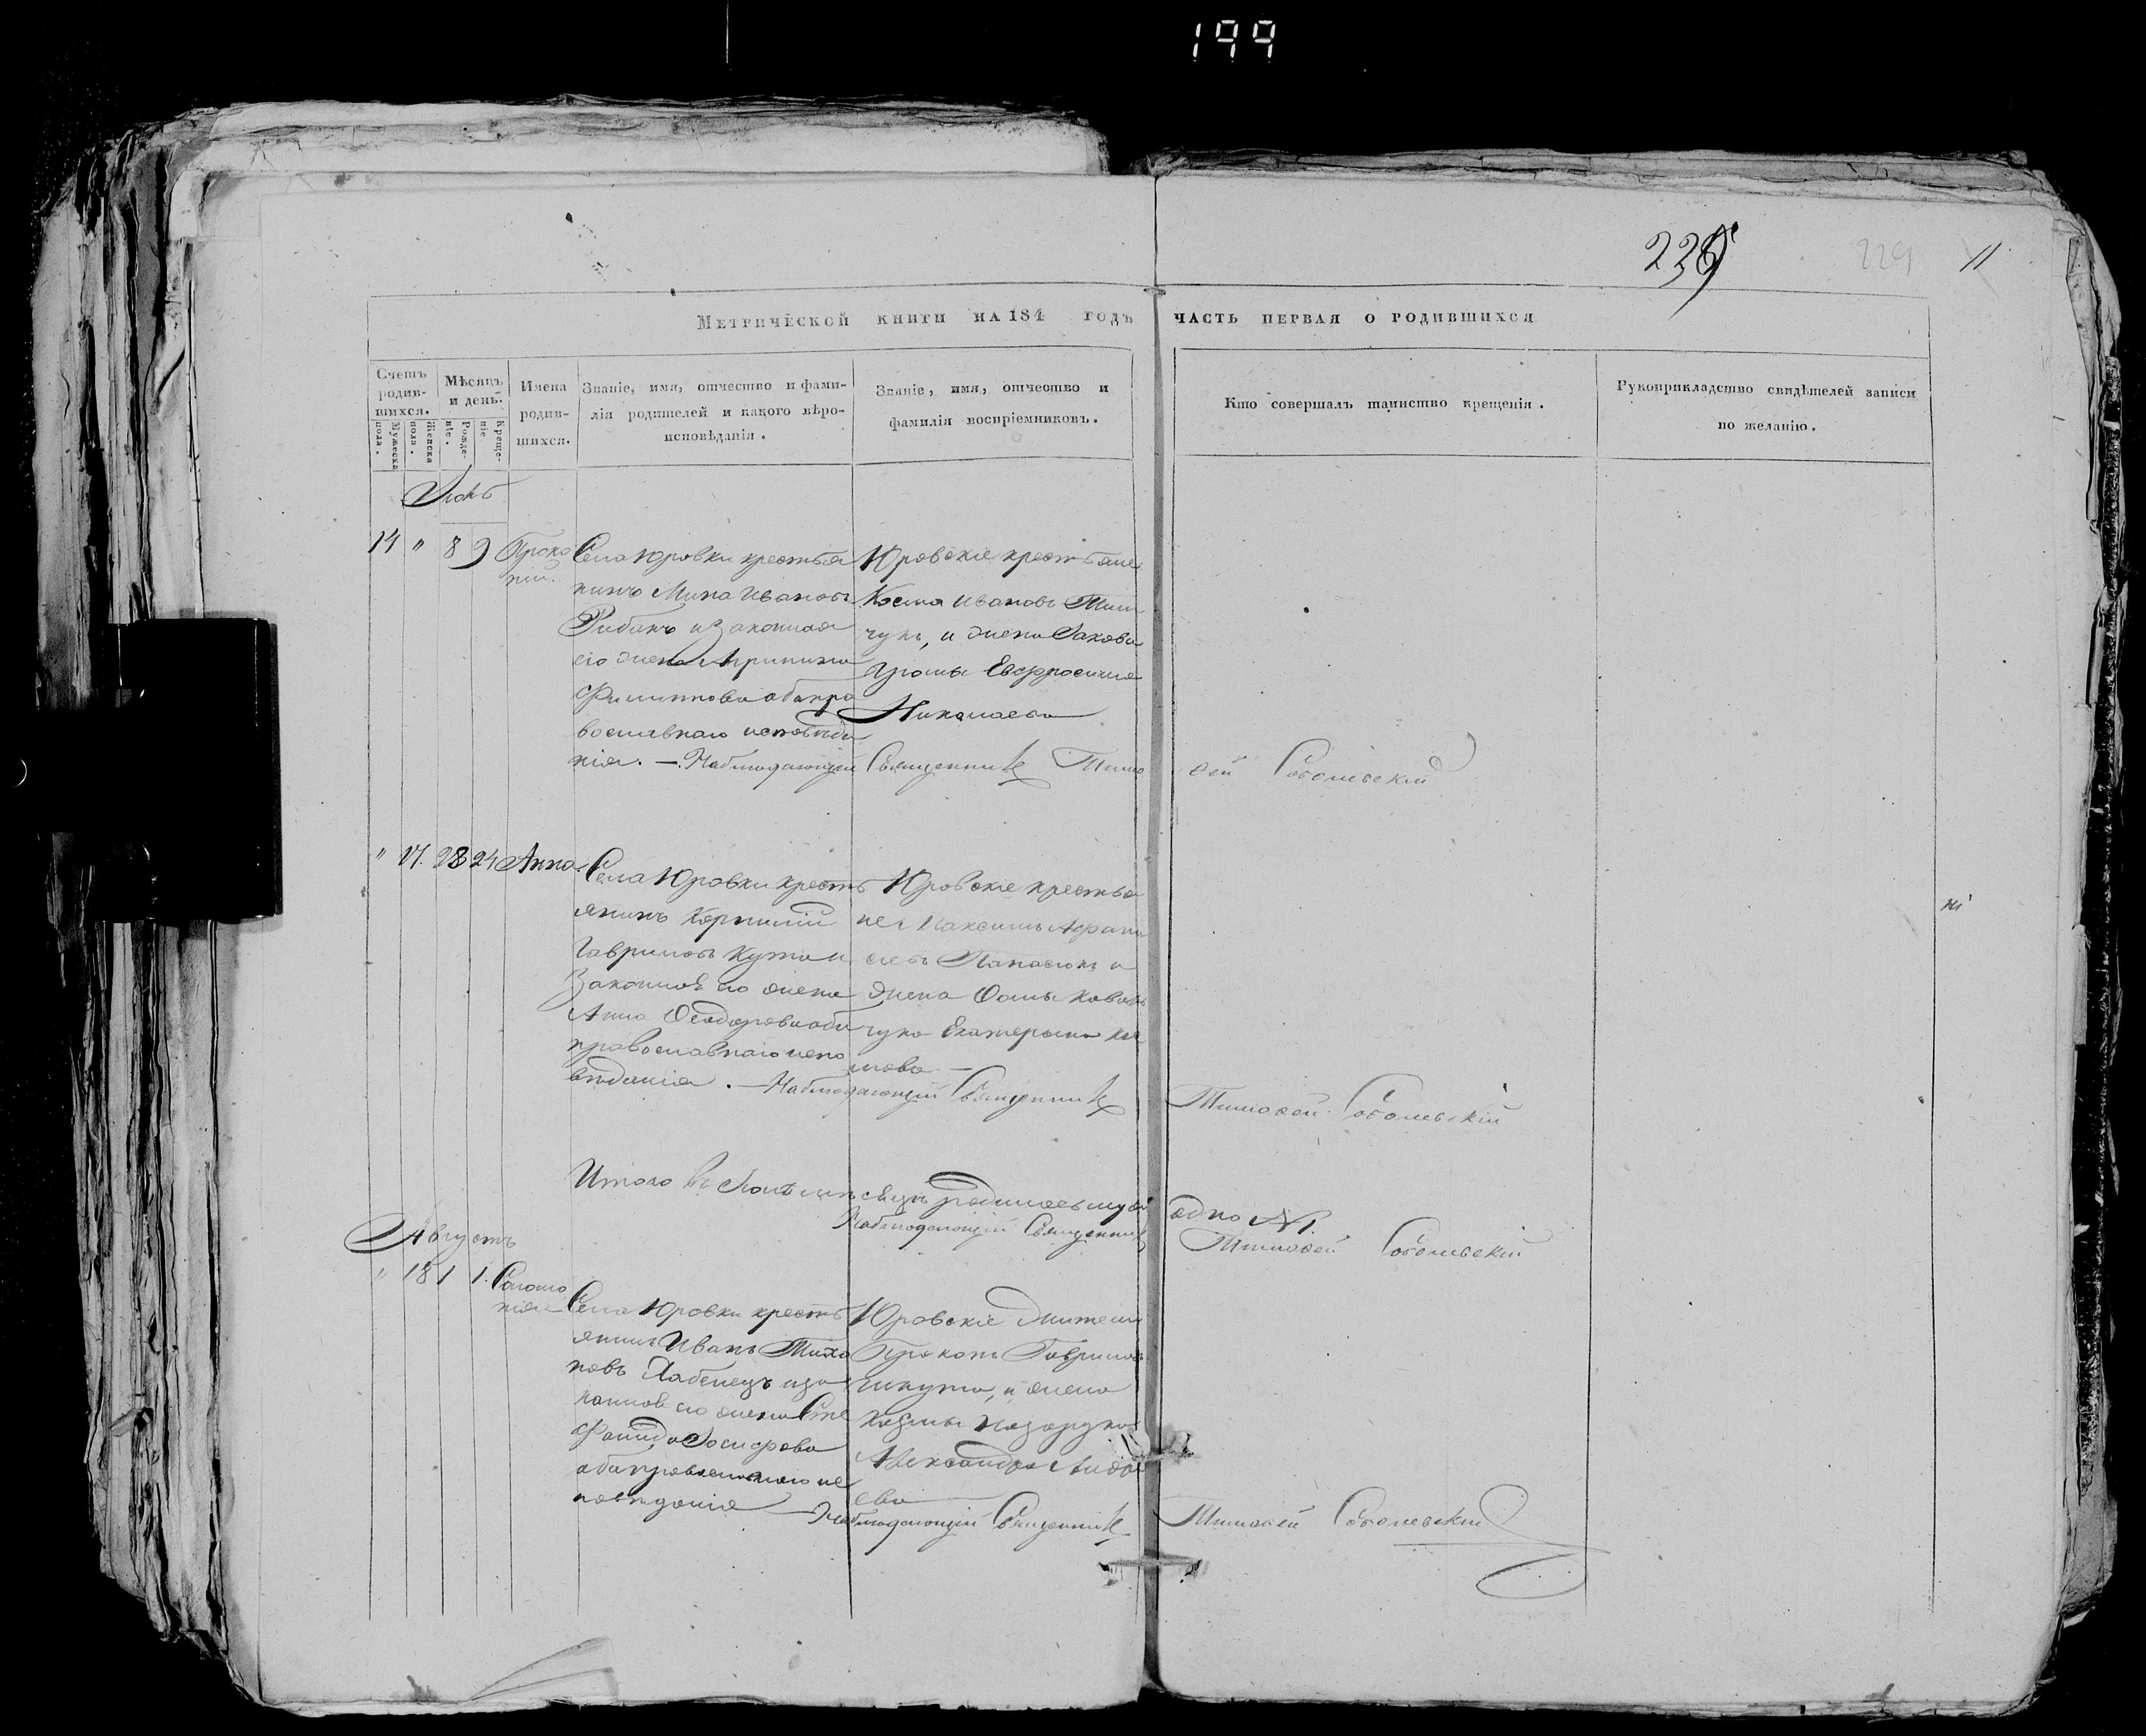 199
235
229
11
Метрической книги на 184 годъ часть первая о родившихся
Счетъ родив-шихся.
Мужеска пола.
Женска пола.
Мѣсяцъ и день.
Рожде-ніе.
Креще-ніе
Имена родив-шихся.
Званіе, имя, отчество и фами-
лія родителей и какого вѣро-
исповѣданія.
Званіе, имя, отчество и
фамилія воспріемниковъ.
Кто совершалъ таинство крещенія.
Рукоприкладство свидѣтелей записи
по желанію.
Іюль
14 " 8 9 Проко
пій.
Села Юровки крестья
нинъ Мина Ивановъ
Рибакъ и законная
его жена Агрипина
Филиппова оба пра
вославнаго исповѣда
нія. —
Юровскіе крестьяне
Косма Ивановъ
чукъ, и жена Іакова
Евфросинія
Николаева
Наблюдающій Священникъ Тимо ѳей Соболевскій
" 17. 23 24 Анна.
Села Юровки кресть
янинъ Корнилій
Гавриловъ и
законная его жена
Анна Ѳеодорова оба
православнаго испо
вѣданія. —
Юровскіе крестья
не: Максимъ Афана
сіевъ Панасюкъ и
жена Ѳомы Коваль
чука Екатерина
Наблюдающій Священникъ Тимоѳей Соболевскій
Итого въ Іюлѣ мѣсяцѣ родилось муж: одно №1.
Наблюдающій Священникъ Тимоѳей Соболевскій
Августъ
" 18 1 1. Соломо
нія
Села Юровки кресть
янинъ Иванъ Тихо
новъ Хабенецъ и за
коннов его жена Сте
фанида Іосифова
оба православнаго ис
повѣданія —
Юровскіе жители
Прокопъ Гавриловъ
и жена
Козмы
Александра
ева
Наблюдающій Священникъ Тимоѳей Соболевскій